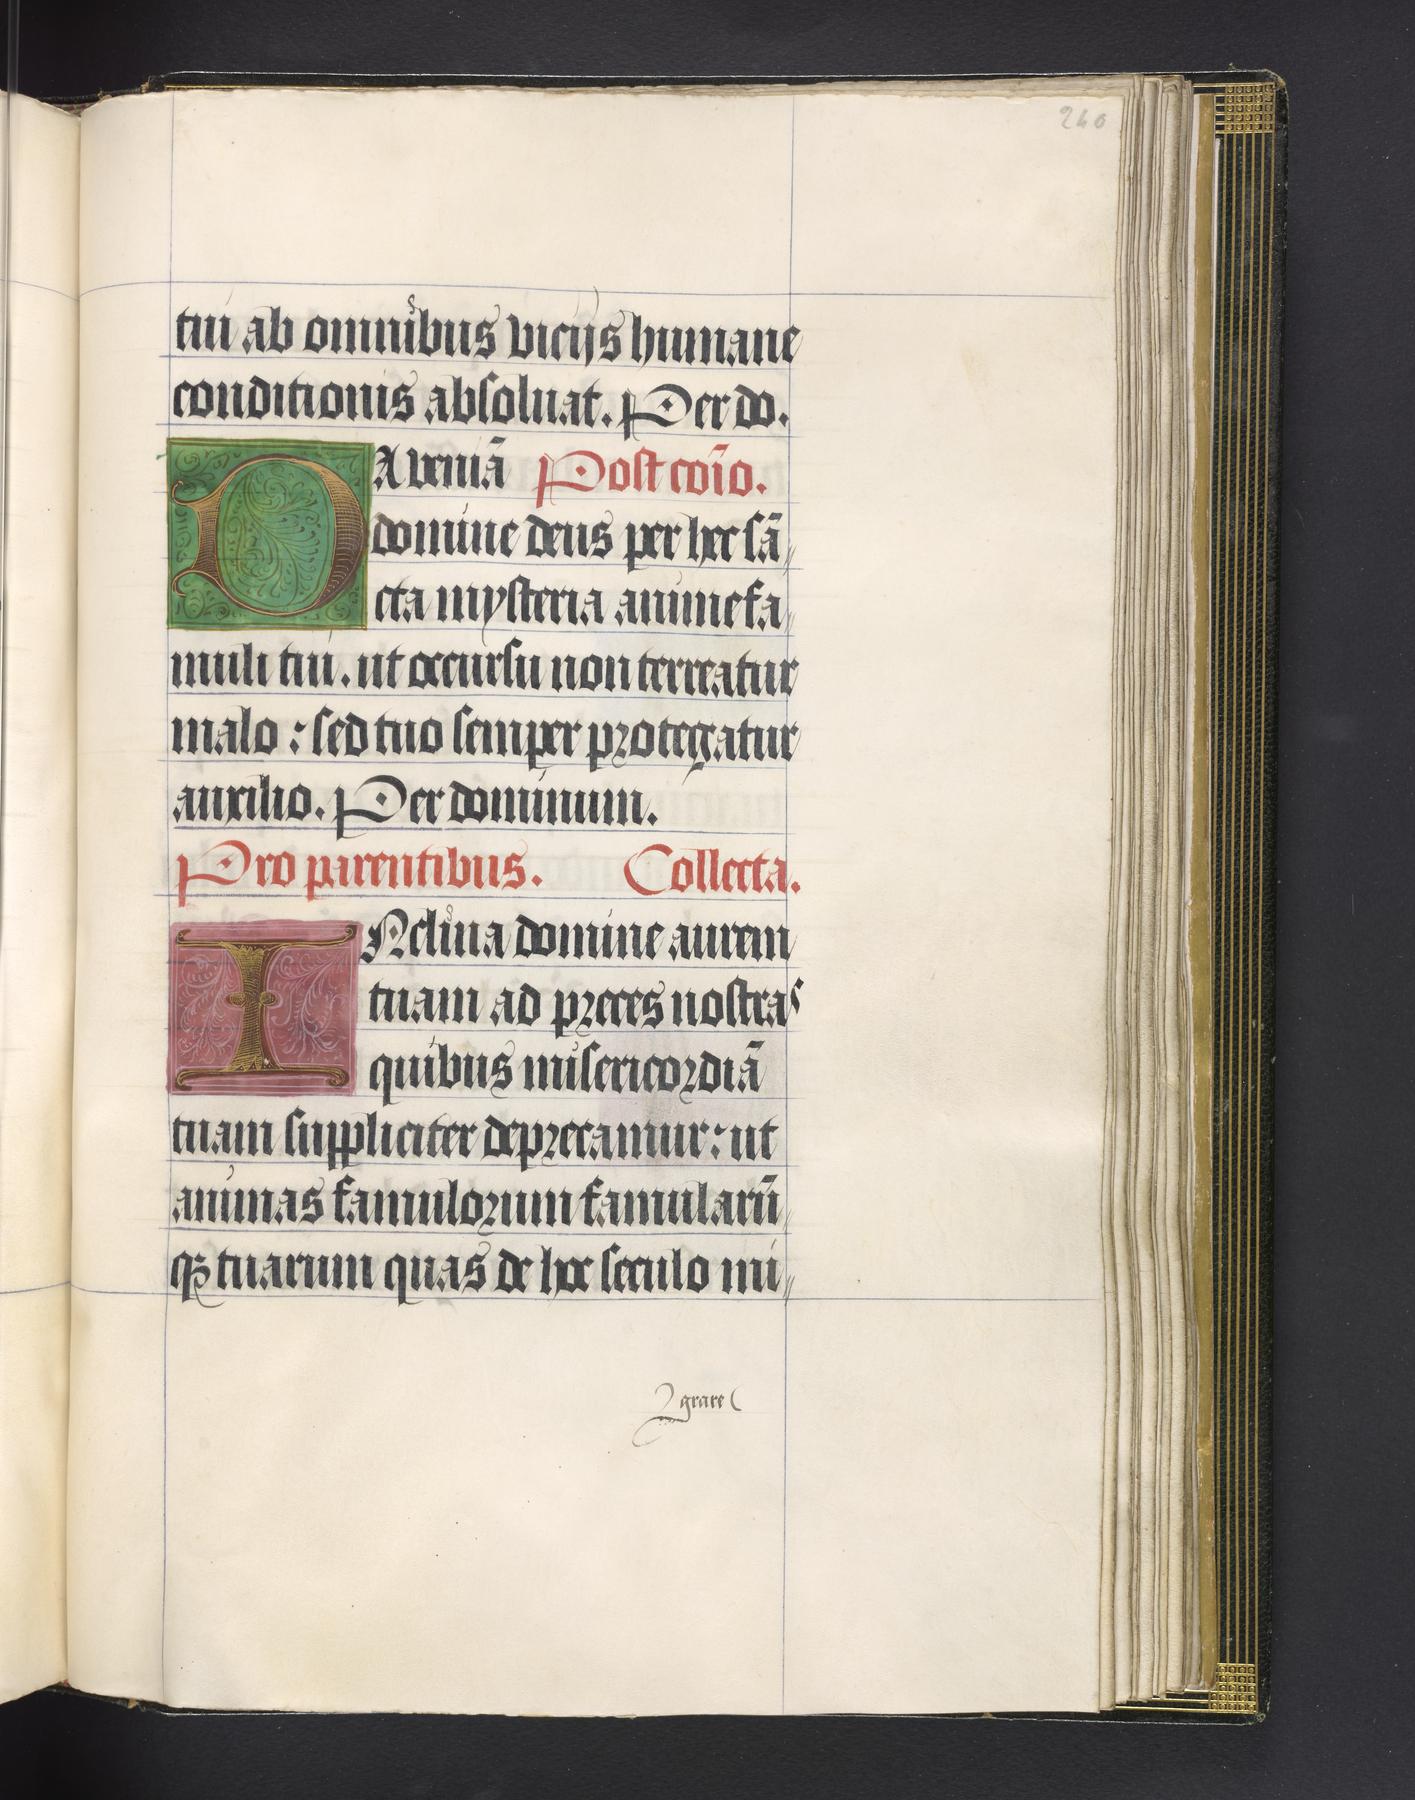 260
tui ab omnibus vicijs humane
conditionis absoluat. Per do.
DA veniā Post cōio.
domine deus per hec sā//
cta mysteria anime fa//
muli tui. ut occursu non terreatur
malo : sed tuo semper protegatur
auxilio. Per dominum.
Pro parentibus. Collecta.
INclina domine aurem
tuam ad preces nostras
quibus misericordiā
tuam suppliciter deprecamur: ut
animas famulorum famularū//
qꝫ tuarum quas de hoc seculo mi//
grare